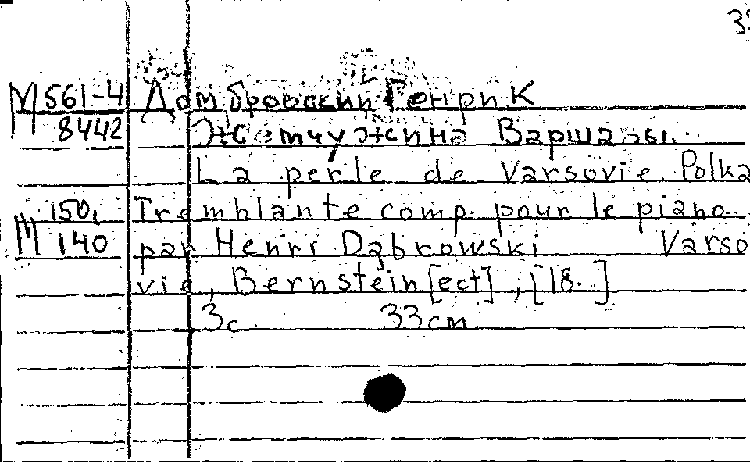 33
М 561-4 Домбровский Генрик
8442 Жемчужина Варшавы.
La perle de Varsovie. Polka
М 150, Tremblante comp. pour le piano
140 par Henri Dąbrowski Varso
vie, Bernstein [ect], [18. ]
3с. 33cm